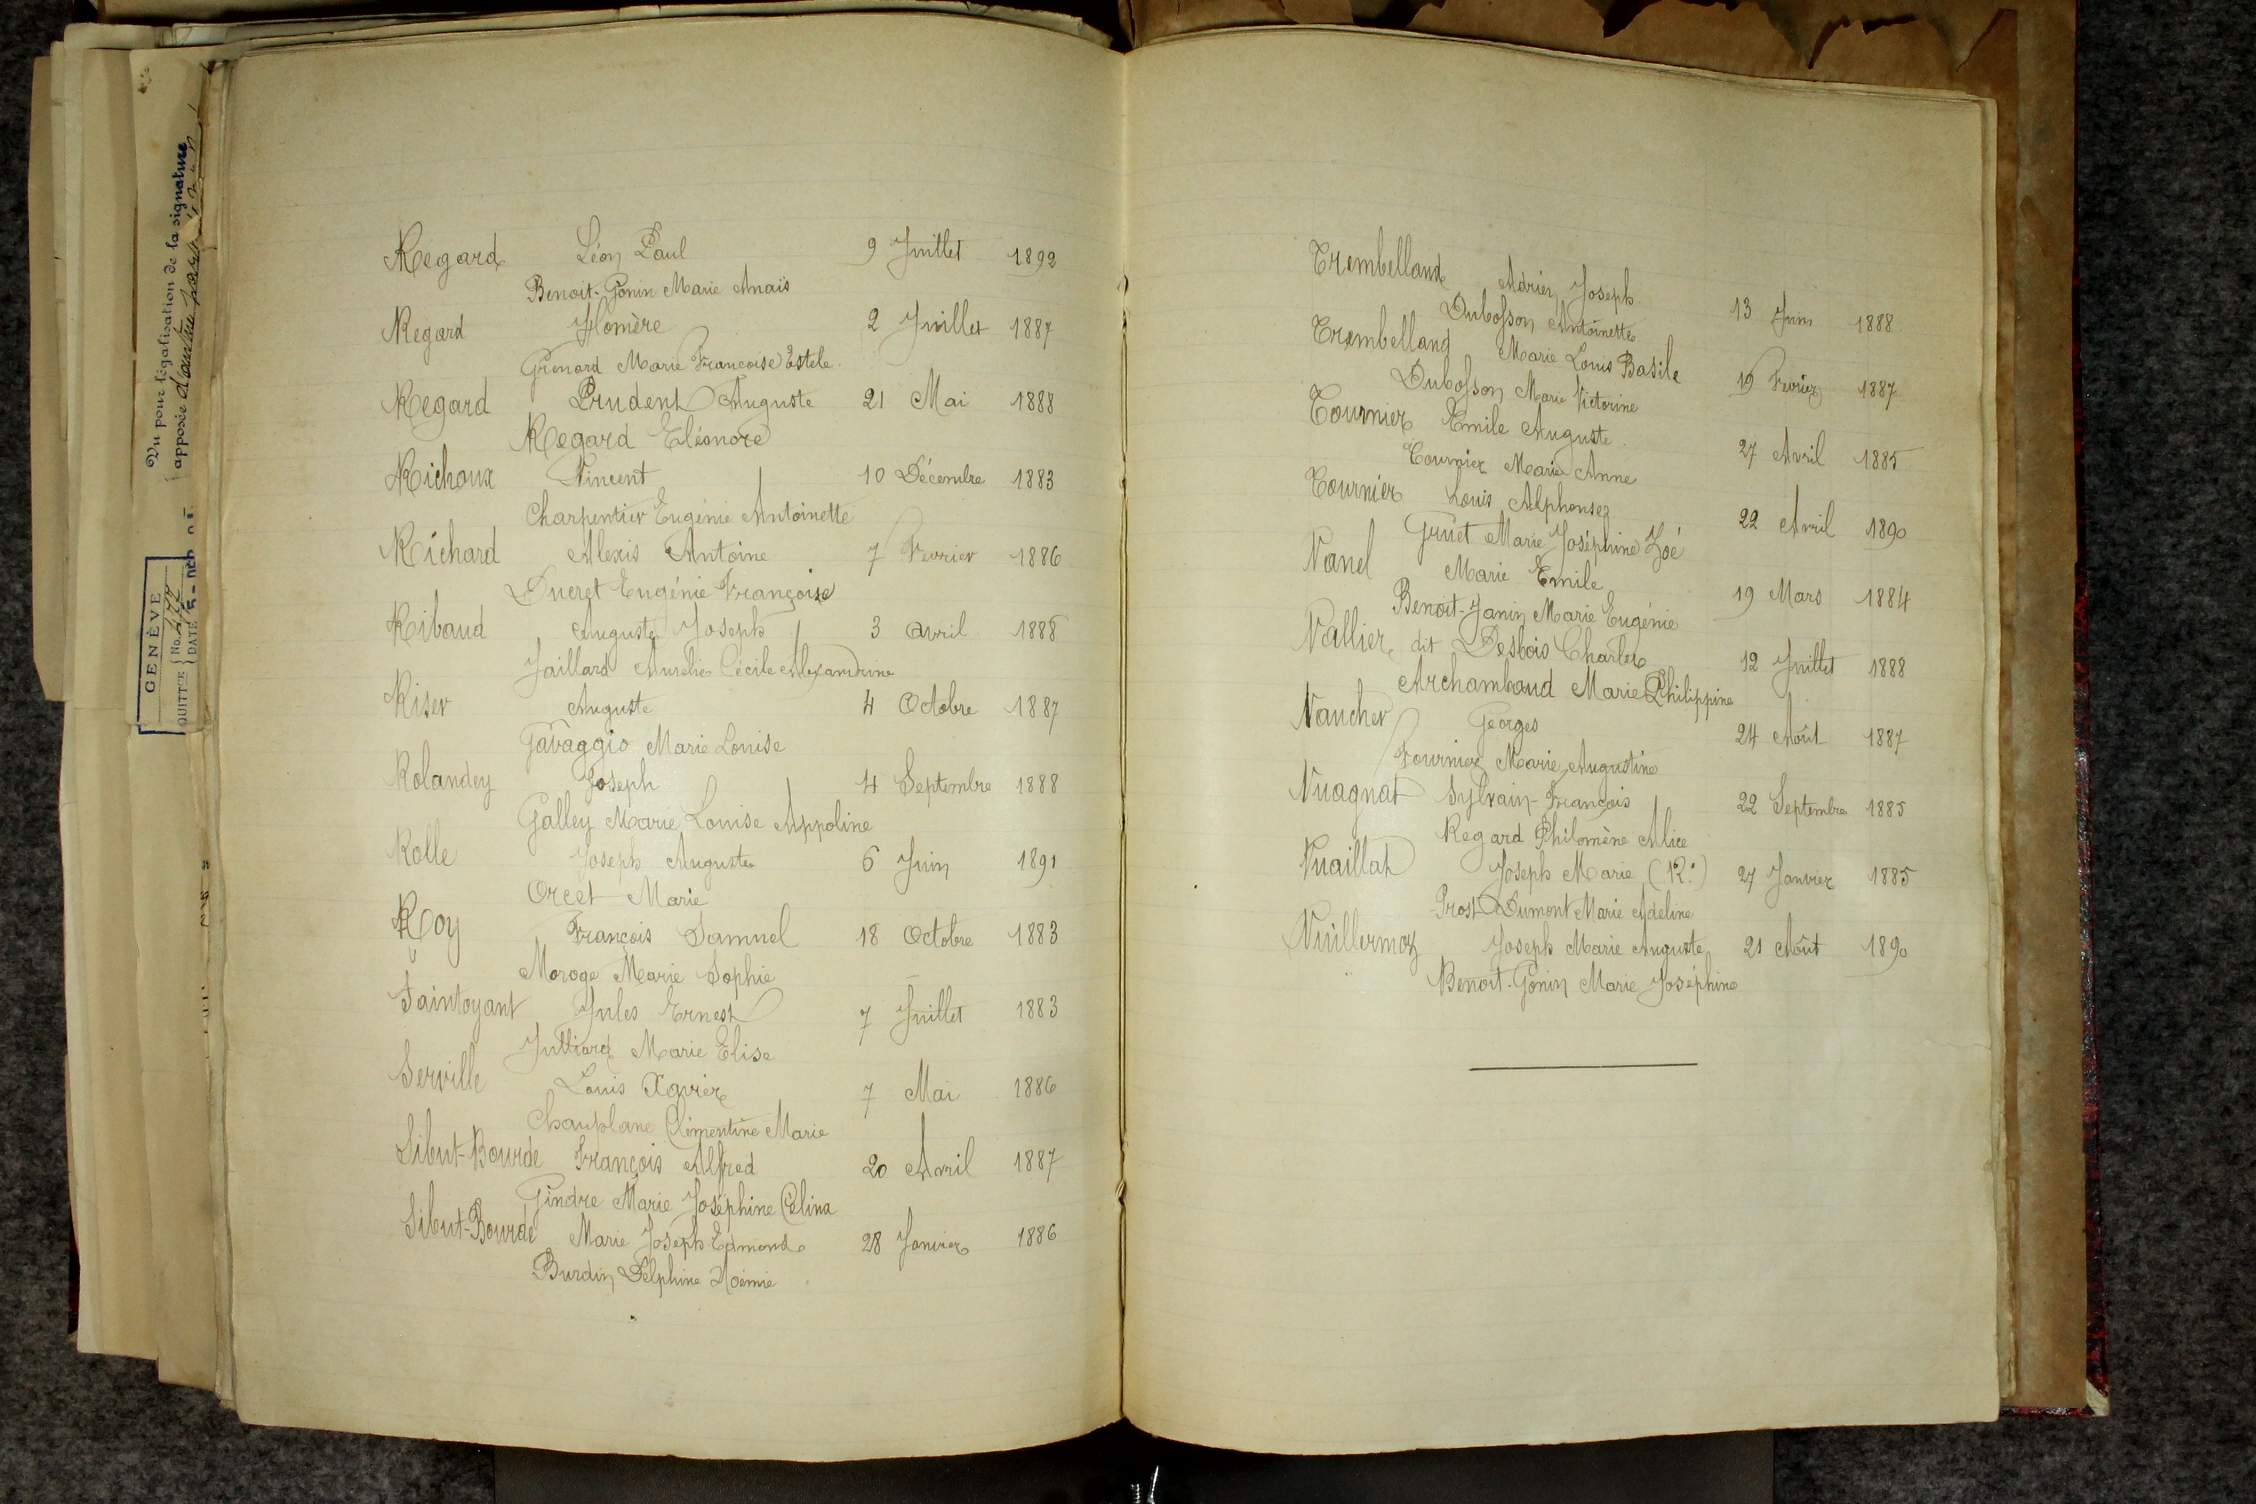 Vu pour légalisation de la signature
apposée d'autre part
GENÈVE
QUITTCE No.
DATE
Regard Léon Paul 9 Juillet 1892
Benoit-Gonin Marie Anaïs
Regard Homère 2 Juillet 1887
Grenard Marie Françoise Estele
Regard Prudent Auguste 21 Mai 1888
Regard Eléonore
Richoux Vincent 10 Décembre 1883
Charpentier Eugénie Antoinette
Richard Alexis Antoine 7 Fvrier 1886
Ducret Eugénie Françoise
Ribaud Auguste Joseph 3 avril 1888
Jaillard Aurélie Cécile Alexandrine
Riser Auguste 4 Octobre 1887
Gavaggio Marie Louise
Rolandey Joseph 4 Septembre 1888
Galley Marie Louise Appoline
Rolle Joseph Auguste 6 Juin 1891
Orcet Marie
Roy François Samuel 18 Octobre 1883
Moroge Marie Sophie
Saintoyant Jules Ernest 7 Juillet 1883
Julliard Marie Elise
Serville Louis Xavier 7 Mai 1886
Chauplane Clémentine Marie
Sibut-Bourde François Alfred 20 Avril 1887
Gindre Marie Joséphine Célina
Sibut-Bourde Marie Joseph Edmond 28 Janvier 1886
Burdin Delphine Noémie
Trembelland Adrien Joseph 13 Juin 1888
Dubosson Antoinette
Trembelland Marie Louis Basile 19 Fvrier 1887
Dubosson Marie Victorine
Tournier Emile Auguste 27 Avril 1885
Tournier Marie Anne
Tournier Louis Alphonse 22 Avril 1890
Gruet Marie Joséphine Zoé
Vanel Marie Emile 19 Mars 1884
Benoit-Janin Marie Eugénie
Vallier dit Desbois Charles 12 Juillet 1888
Archambaud Marie Philippine
Vaucher Georges 24 Août 1887
Fournier Marie Augustine
Vuagnat Sylvain-François 22 Septembre 1885
Regard Philomène Alice
Vuaillat Joseph Marie (R.) 27 Janvier 1885
Prost Dumont Marie Adeline
Vuillermoz Joseph Marie Auguste 21 Août 1890
Benoit-Gonin Marie Joséphine